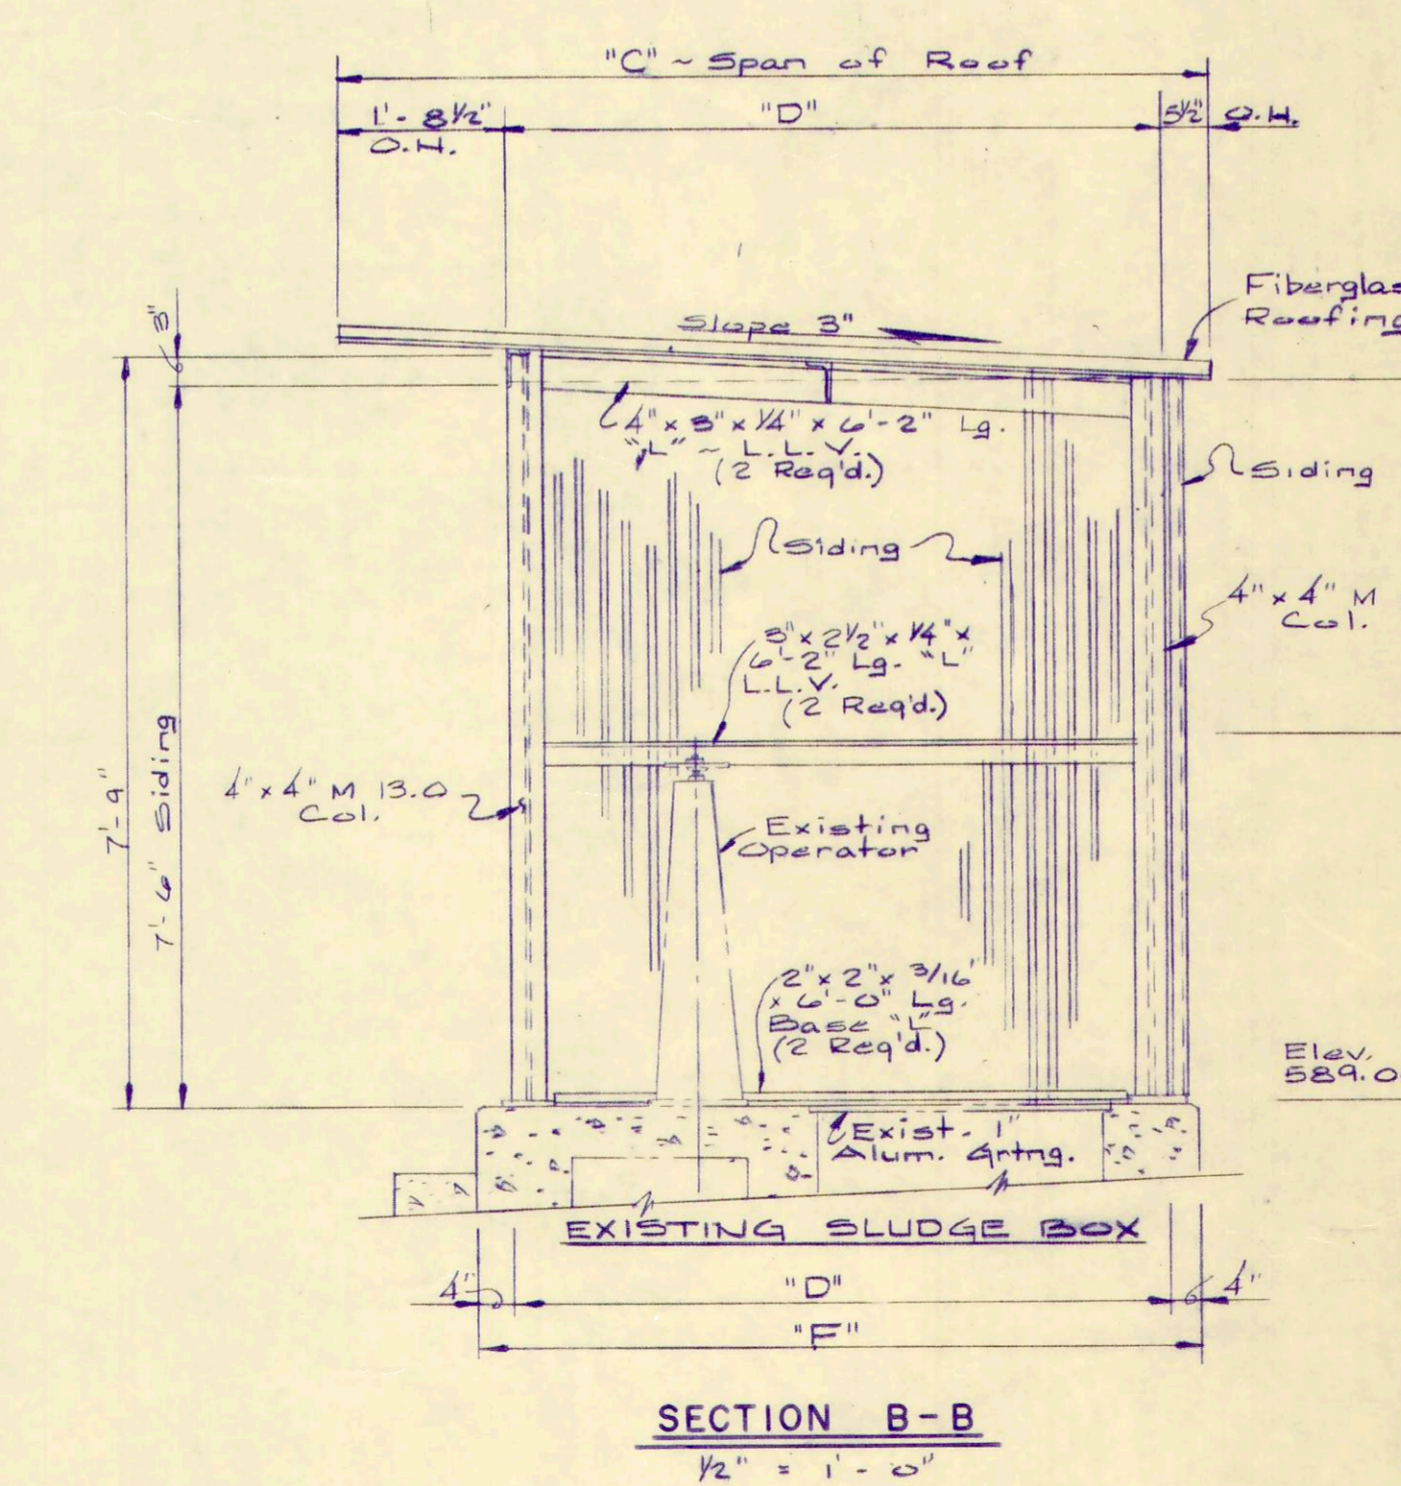 "C" ~ Span of Roof
1'- 8½"
O.H.
"D"
5½"
O.H.
Fiberglas
Roofing
3"
Slope 3"
4" x 3" x ¼" x 6'-2" Lg.
"L" ~ L.L.V.
(2 Req'd.)
Siding
Siding
4" x 4" M
Col.
3" x 2½" x ¼" x
6'-2" Lg. "L"
L.L.V.
(2 Req'd.)
7'-9"
7'-6" Siding
4" x 4" M 13.0
Col.
Existing
Operator
2" x 2" x 3/16"
x 6'-0" Lg.
Base "L"
(2 Req'd.)
Elev.
589.0
Exist. 1"
Alum. Grtng.
EXISTING SLUDGE BOX
4"
"D"
4"
"F"
SECTION B-B
½" = 1'-0"